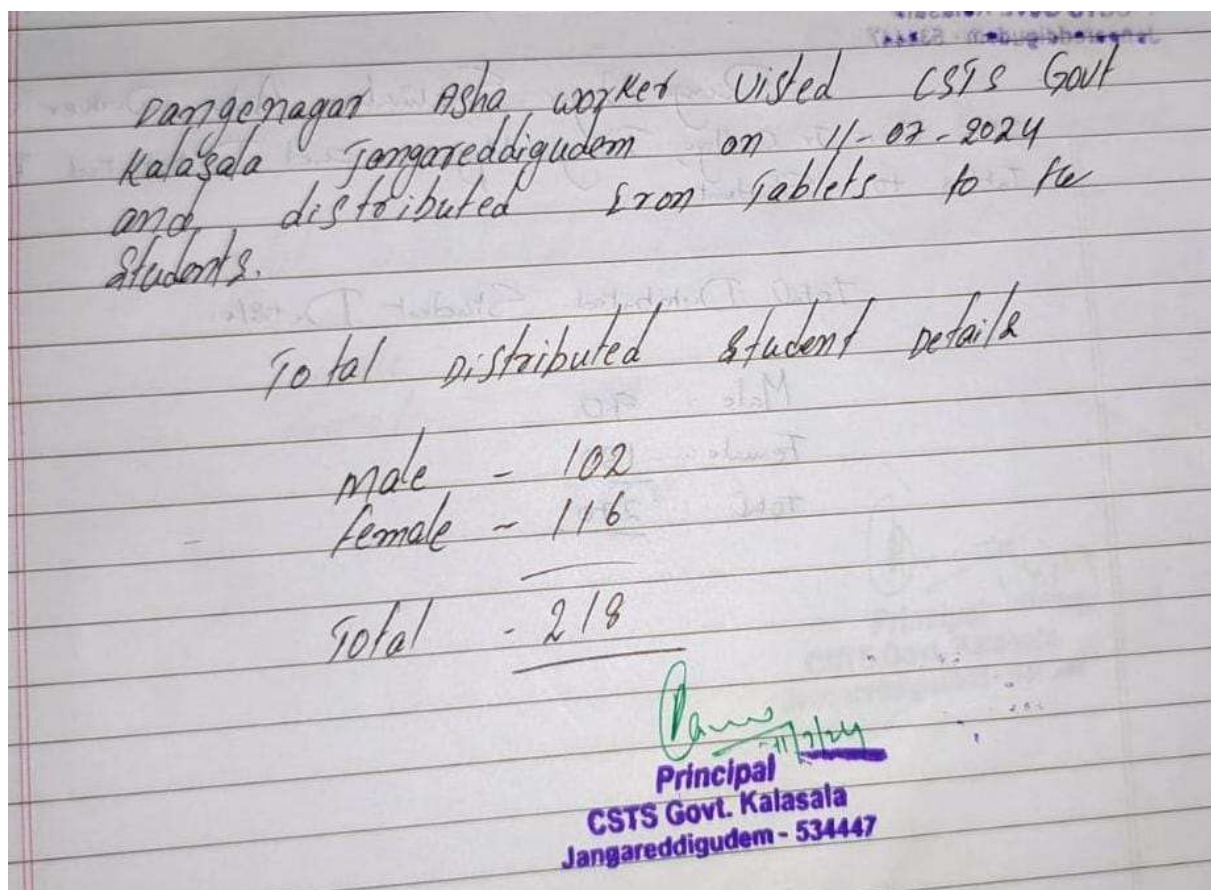 Jangareddigudem - 534447
Dangenagar Asha worker Visted CSTS Govt
Kalasala Jangareddigudem on 11-07-2024
and distributed Iron Tablets to the
Students.
Total Distributed Student Details
male - 102
female - 116
Total - 218
11/7/24
Principal
CSTS Govt. Kalasala
Jangareddigudem - 534447